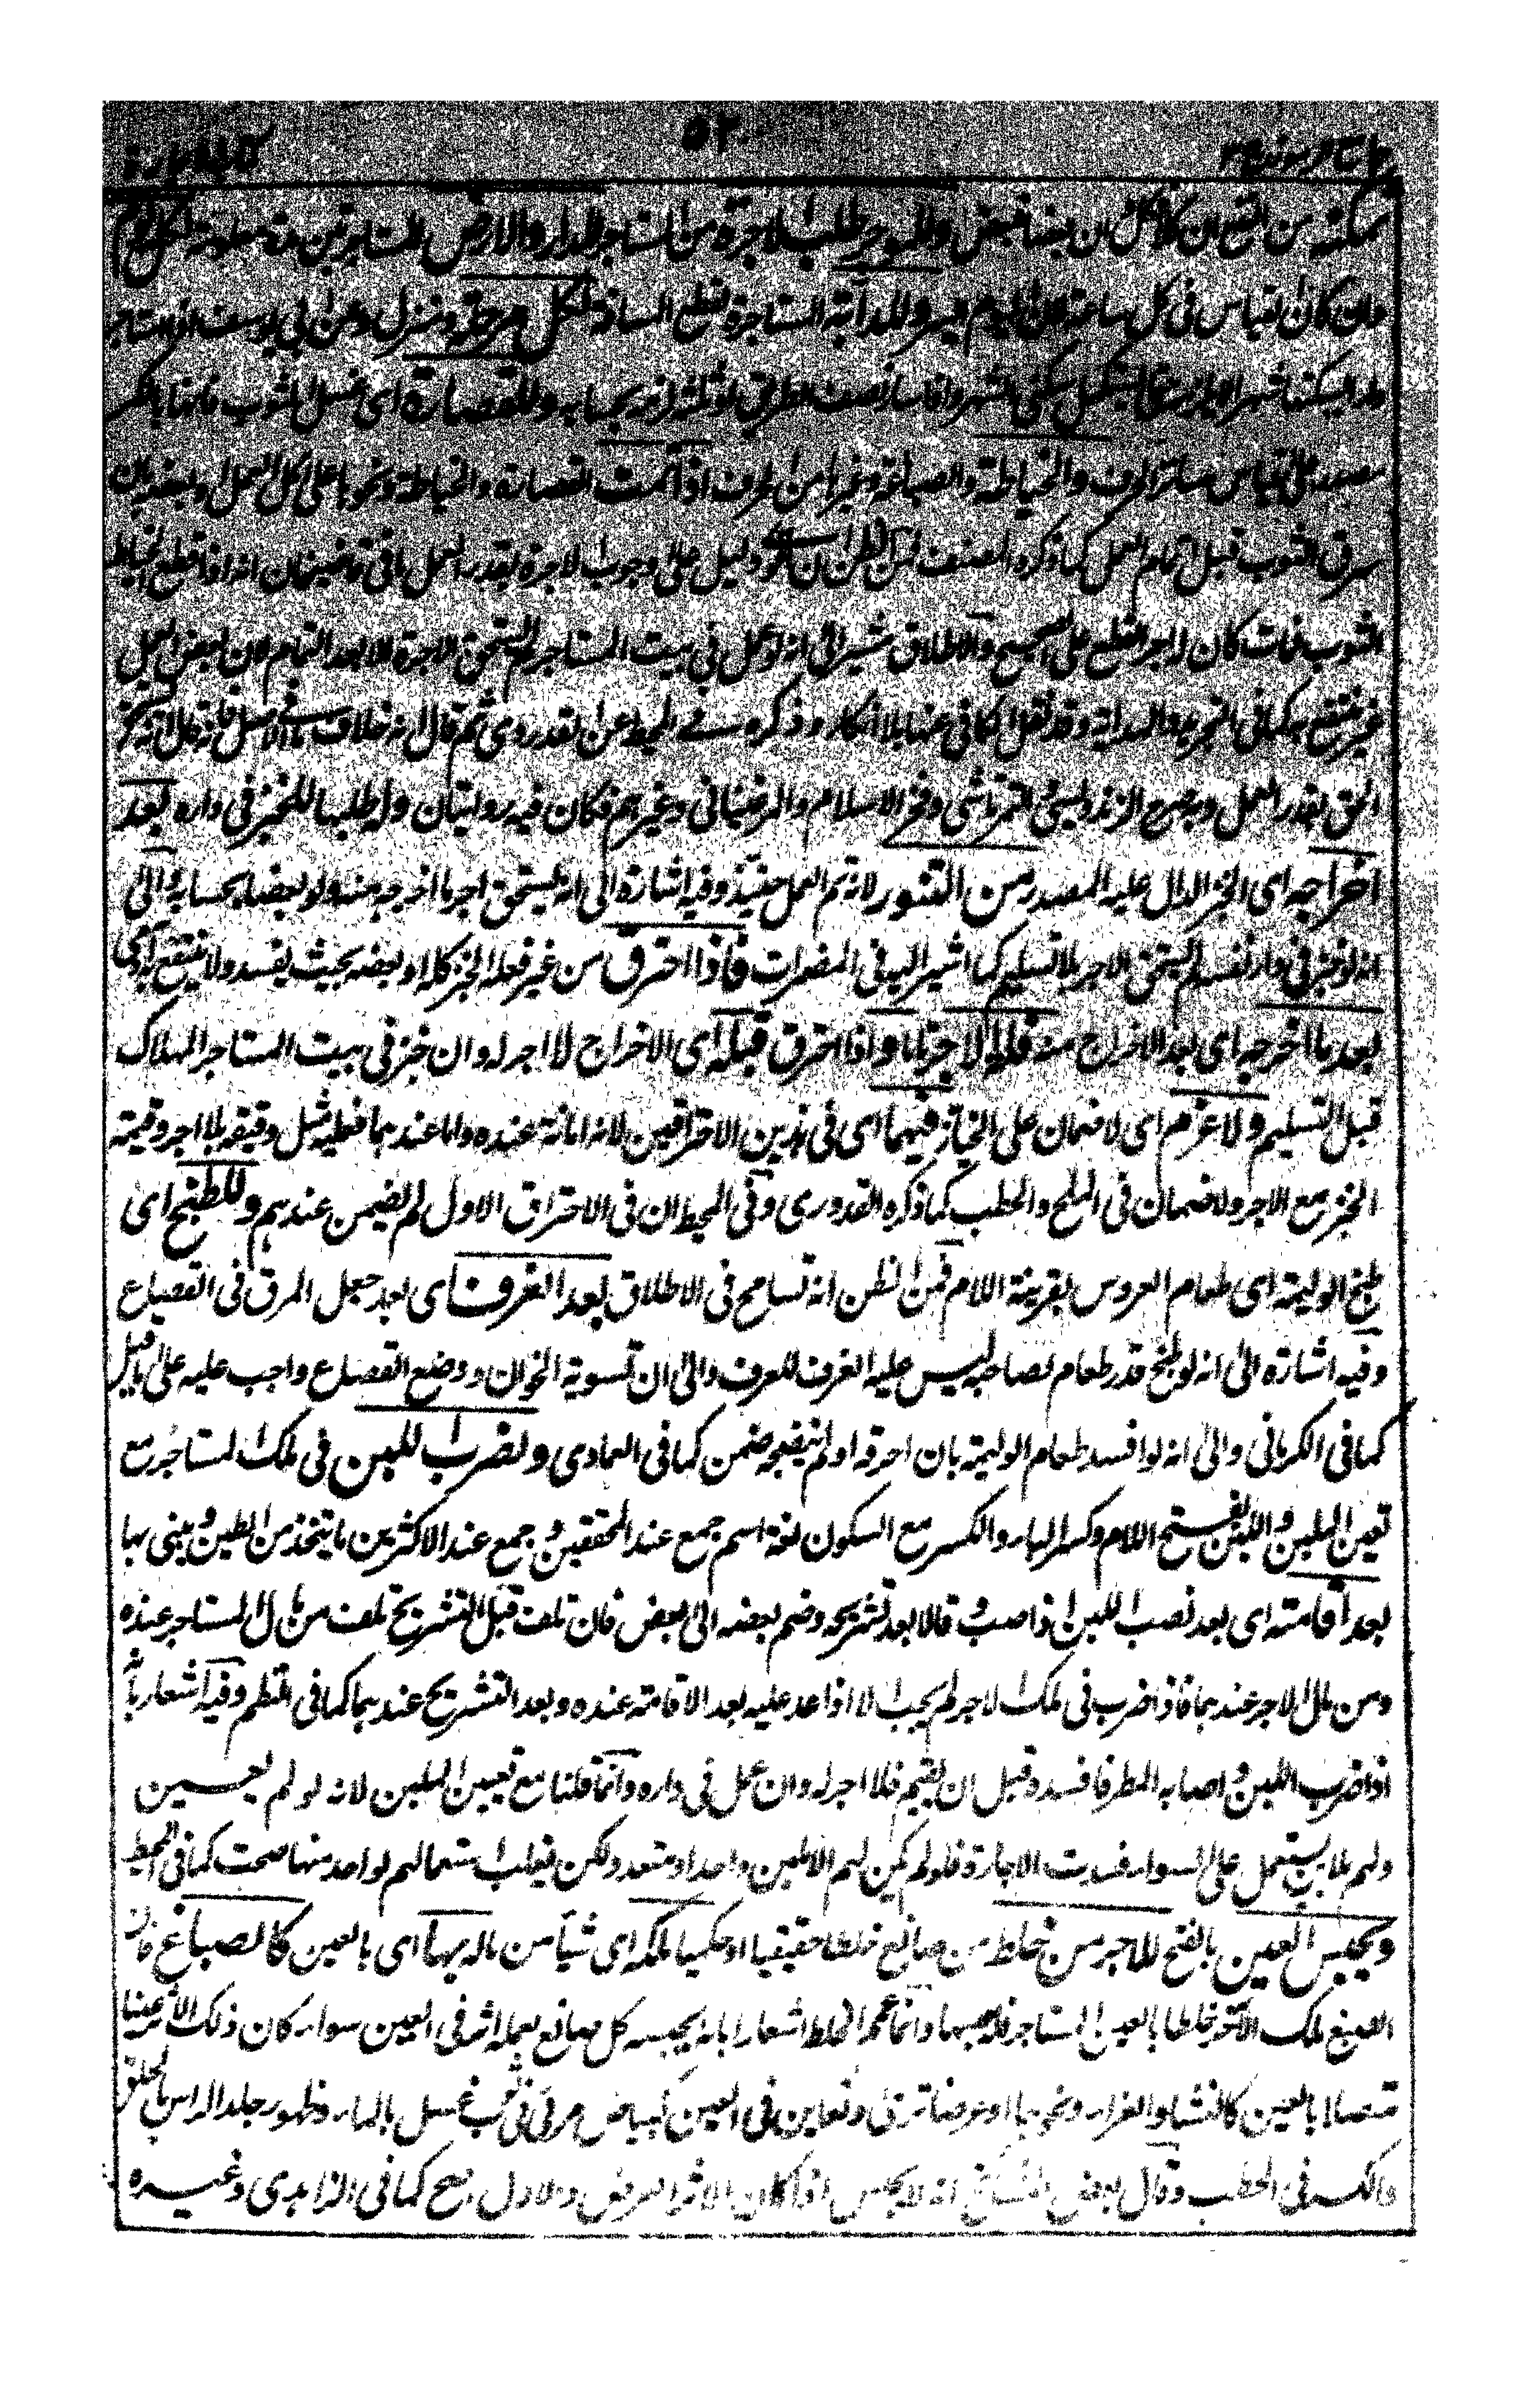 جامع الرموز ج ٣ ٥٢ كتاب الاجارة
تمكنه من النفع ان كلا فكل وان بعضا فبعض وللموجر طلب الاجرة من المستاجر للدار والارض المستاجرتين مدة معلومة لكل يوم
وان كان القياس فى كل ساعة وللدابة المستاجرة لقطع المسافة لكل مرحلة ومنزل وعن ابى يوسف
الشهر نصف الطريق او ثلثه لزمه بحسابه وللقصارة اى غسل الثوب فانها بالكسر
مصدر على القياس والخياطة والصباغة وغيرها من الحرف اذا تمت القصارة والخياطة ونحوها على كل العمل
سرق الثوب قبل اتمام العمل كما ذكره المصنف فمن الظن دليل على وجوب الاجرة بقدر العمل ما فى قاضيخان انه اذا قطع الخياط
الثوب فمات كان له اجر القطع على الصحيح والاطلاق مشير الى انه لو عمل فى بيت المستاجر لم يستحق الاجرة الا بعد التمام لان بعض العمل
غير منتفع به كما فى التجريد والهداية وقد نقل الكافى عنها بلا انكار وذكره فى المحيط عن القدورى ثم قال انه خلاف ما فى الاصل فانه قال انه
استحق بقدر العمل وبه صرح الزندويستى والتمرتاشى وفخر الاسلام والمرغينانى وغيرهم فكان فيه روايتان وله طلبها للخبز فى داره بعد
اخراجه اى الخبز الدال عليه المصدر من التنور لانه تم العمل حينئذ وفيه اشارة الى انه يستحق اجر ما اخرجه منه ولو بعضا بحسابه والى
انه لو خبز فى دار نفسه لم يستحق الاجر بلا تسليم كما اشير اليه فى المضمرات فاذا احترق من غير فعله الخبز كله او بعضه بحيث يفسد ولا ينتفع به آدمى
بعد ما اخرجه اى بعد الاخراج منه فله الاجر تاما واذا احترق قبله اى الاخراج لا اجر له وان خبز فى بيت المستاجر لهلاك
قبل التسليم ولا غرم اى لا ضمان على الخباز فيهما اى فى هذين الاحتراقين لانه امانة عنده واما عندهما فعليه مثل دقيقه بلا اجر وقيمة
الخبز مع الاجر ولا ضمان فى الملح والحطب كما ذكره القدورى وفى المحيط ان فى الاحتراق الاول لم يضمن عندهم وللطبخ اى
طبخ الوليمة اى طعام العروس بقرينة اللام فمن الظن انه تسامح فى الاطلاق بعد الغرف اى بعد جعل المرق فى القصاع
وفيه اشارة الى انه لو طبخ قدر طعام لصاحبه ليس عليه الغرف للعرف والى ان تسوية الخوان ووضع القصاع واجب عليه على ما قيل
كما فى الكرمانى والى انه لو افسد طعام الوليمة بان احرقه او لم ينضجه ضمن كما فى العمادى ولضرب اللبن فى ملك المستاجر مع
تعين الملبن واللبن بفتح اللام وكسر الباء والكسر مع السكون لغة اسم جمع عند المحققين وجمع عند الاكثرين ما يتخذ من الطين ويبنى بها
بعد اقامته اى بعد نصب اللبن اذا صب وقالا بعد تشريجه وضم بعضه الى بعض فان تلف قبل التشريج تلف من مال المستاجر عنده
ومن مال الاجر عندهما فاذا ضرب فى ملك الاجر لم يجب الا اذا عد عليه بعد الاقامة عنده وبعد التشريج عندهما كما فى النظم وفيه اشعار بانه
اذا ضرب اللبن واصابه المطر فافسده قبل ان يقيم فلا اجر له وان عمل فى داره وانما قلنا مع تعيين الملبن لانه لو لم يعين
ولهم ملابن يستعمل على السواء فسدت الاجارة فلو لم يكن لهم الا ملبن واحد او متعدد ولكن يغلب استعمالهم لواحد منها صحت كما فى المحيط
ويحبس العين بالفتح للاجر من خلط من صانع خلطا حقيقيا او حكميا ملكه اى شيئا من ماله بها اى بالعين كالصباغ فان
الصبغ ملك الاجر خلطا بالعين المستاجر فله حبسها وانما عمم الخلط اشعارا بانه يحبسه كل صانع لعمله اثر فى العين سواء كان ذلك الاثر عينا
متصلا بالعين كالنشا والغراء ونحوهما او عرضا ترى وتعاين فى العين كبياض مرئى فى ثوب غسل بالماء وظهور جلد الراس بالحلق
والكسر فى الحطب وقال بعض المشايخ انه لا يحبس اذا كان الاثر العرض والاول اصح كما فى الزاهدى وغيره